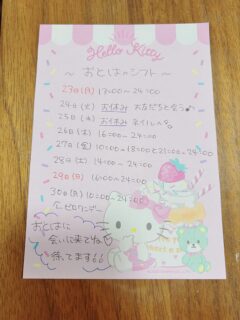 Hello Kitty
～ おとはのシフト ～
23日(月) 13:00～24:00
24日(火) お休み お友だちと会う♪
25日(水) お休み ネイルへ
26日(木) 16:00～24:00
27日(金) 10:00～18:00と21:00～24:00
28日(土) 14:00～24:00
29日(日) 16:00～24:00
30日(月) 10:00～24:00
おとはに
会いに来てね♡
待ってます